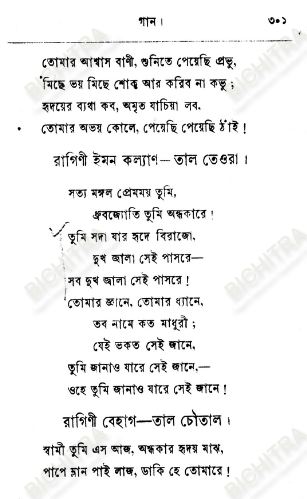 গান। ৩০১
তোমার আশ্বাস বাণী, শুনিতে পেয়েছি প্রভু,
মিছে ভয় মিছে শোক আর করিব না কভু;
হৃদয়ের ব্যথা কব, অমৃত যাচিয়া লব,
তোমার অভয় কোলে, পেয়েছি পেয়েছি ঠাঁই!
রাগিণী ইমন কল্যাণ—তাল তেওরা।
সত্য মঙ্গল প্রেমময় তুমি,
ধ্রুবজ্যোতি তুমি অন্ধকারে!
তুমি সদা যার হৃদে বিরাজো,
দুখ জ্বালা সেই পাসরে—
সব দুখ জ্বালা সেই পাসরে!
তোমার জ্ঞানে, তোমার ধ্যানে,
তব নামে কত মাধুরী;
যেই ভকত সেই জানে,
তুমি জানাও যারে সেই জানে,—
ওহে তুমি জানাও যারে সেই জানে!
রাগিণী বেহাগ—তাল চৌতাল।
স্বামী তুমি এস আজ, অন্ধকার হৃদয় মাঝ,
পাপে ম্লান পাই লাজ, ডাকি হে তোমারে!
BICHITRA